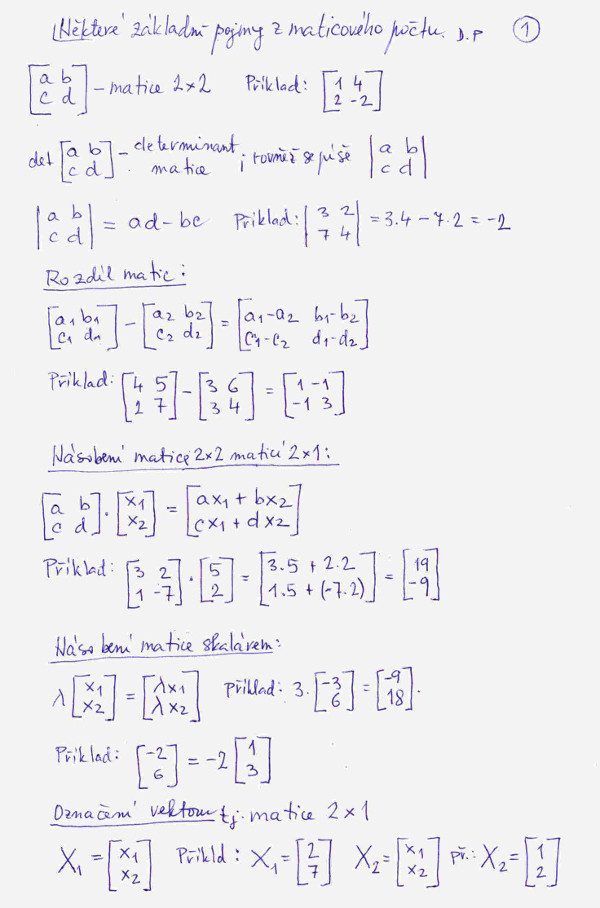 Některé základní pojmy z maticového počtu. D.P 1
[a b; c d] – matice 2×2 Příklad: [1 4; 2 -2]
det [a b; c d] – determinant matice ; rovněž se píše |a b; c d|
|a b; c d| = ad – bc Příklad: |3 2; 7 4| = 3.4 – 7.2 = -2
Rozdíl matic:
[a1 b1; c1 d1] – [a2 b2; c2 d2] = [a1-a2 b1-b2; c1-c2 d1-d2]
Příklad: [4 5; 2 7] – [3 6; 3 4] = [1 -1; -1 3]
Násobení matice 2×2 maticí 2×1:
[a b; c d] . [x1; x2] = [ax1 + bx2; cx1 + dx2]
Příklad: [3 2; 1 -7] . [5; 2] = [3.5 + 2.2; 1.5 + (-7.2)] = [19; -9]
Násobení matice skalárem:
λ [x1; x2] = [λx1; λx2] Příklad: 3. [-3; 6] = [-9; 18].
Příklad: [-2; 6] = -2 [1; 3]
Označení vektoru tj. matice 2×1
X1 = [x1; x2] Příkld : X1 = [2; 7] X2 = [x1; x2] př.: X2 = [1; 2]